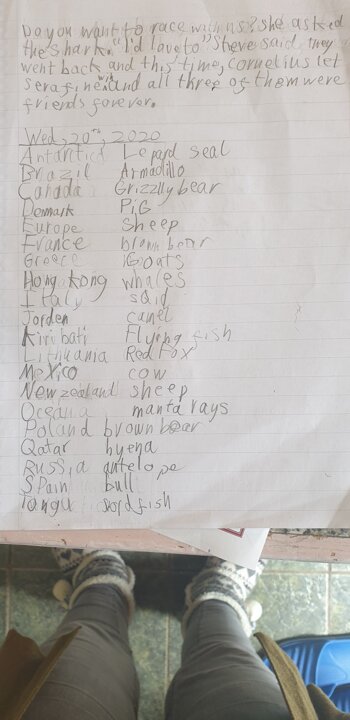 Do you want to race with us? she asked
the shark. "I'd love to" Sheve said. they
went back and this time, cornelius let
serafine win and all three of them were
friends forever.
Wed, 20th, 2020
Antartica Lepard seal
Brazil Armadillo
Canada Grizzlly bear
Demark PIG
Europe Sheep
France brown bear
Greece Goats
Hong kong whales
Italy sqid
Jorden camel
Kiribati Flying fish
Lithuania Red Fox
Mexico cow
New zealand sheep
Oceana manta rays
Poland brown bear
Qatar hyena
Russia antelope
Spain bull
Tonga sordfish